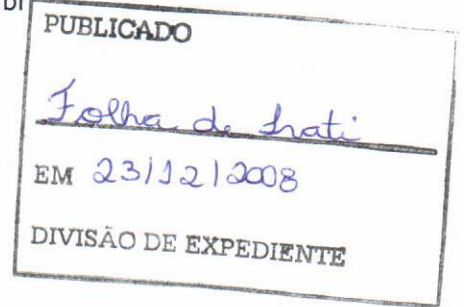 br
PUBLICADO
Folha de Irati
EM 23/12/2008
DIVISÃO DE EXPEDIENTE